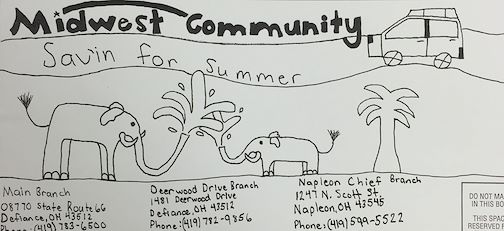 Midwest Community
Savin for Summer
Main Branch
08770 State Route 66
Defiance, OH 43512
Phone: (419) 783-6500
Deerwood Drive Branch
1481 Deerwood Drive
Defiance, OH 43512
Phone: (419) 782-9856
Napleon Chief Branch
1247 N. Scott St
Napleon, OH 43545
Phone: (419) 599-5522
DO NOT MA
IN THIS BO
THIS SPAC
RESERVED